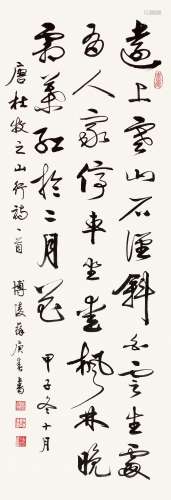 遠上寒山石徑斜白雲生處
有人家停車坐愛楓林晚
霜葉紅於二月花
甲子冬十月
唐杜牧之山行詩一首
博陵薛庚春書